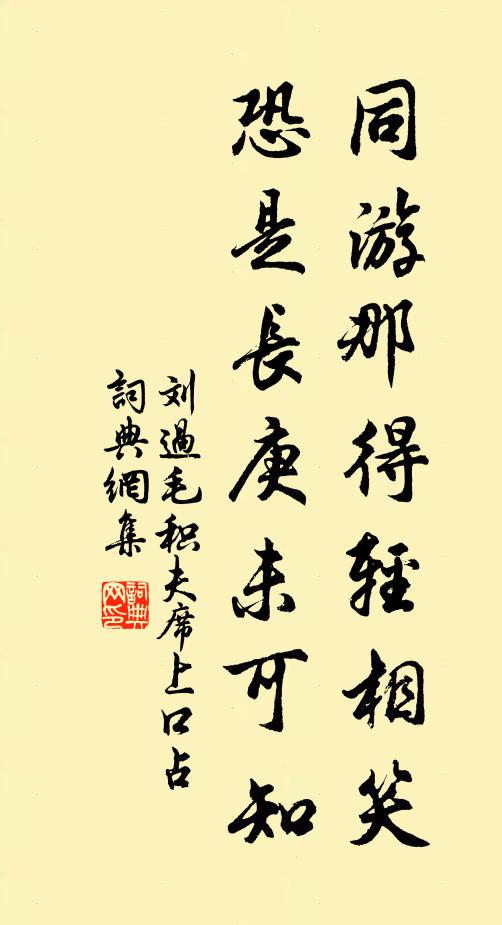 同游那得輕相笑
恐是長庚未可知
刘過毛积夫席上口占
詞典網集
詞典网印